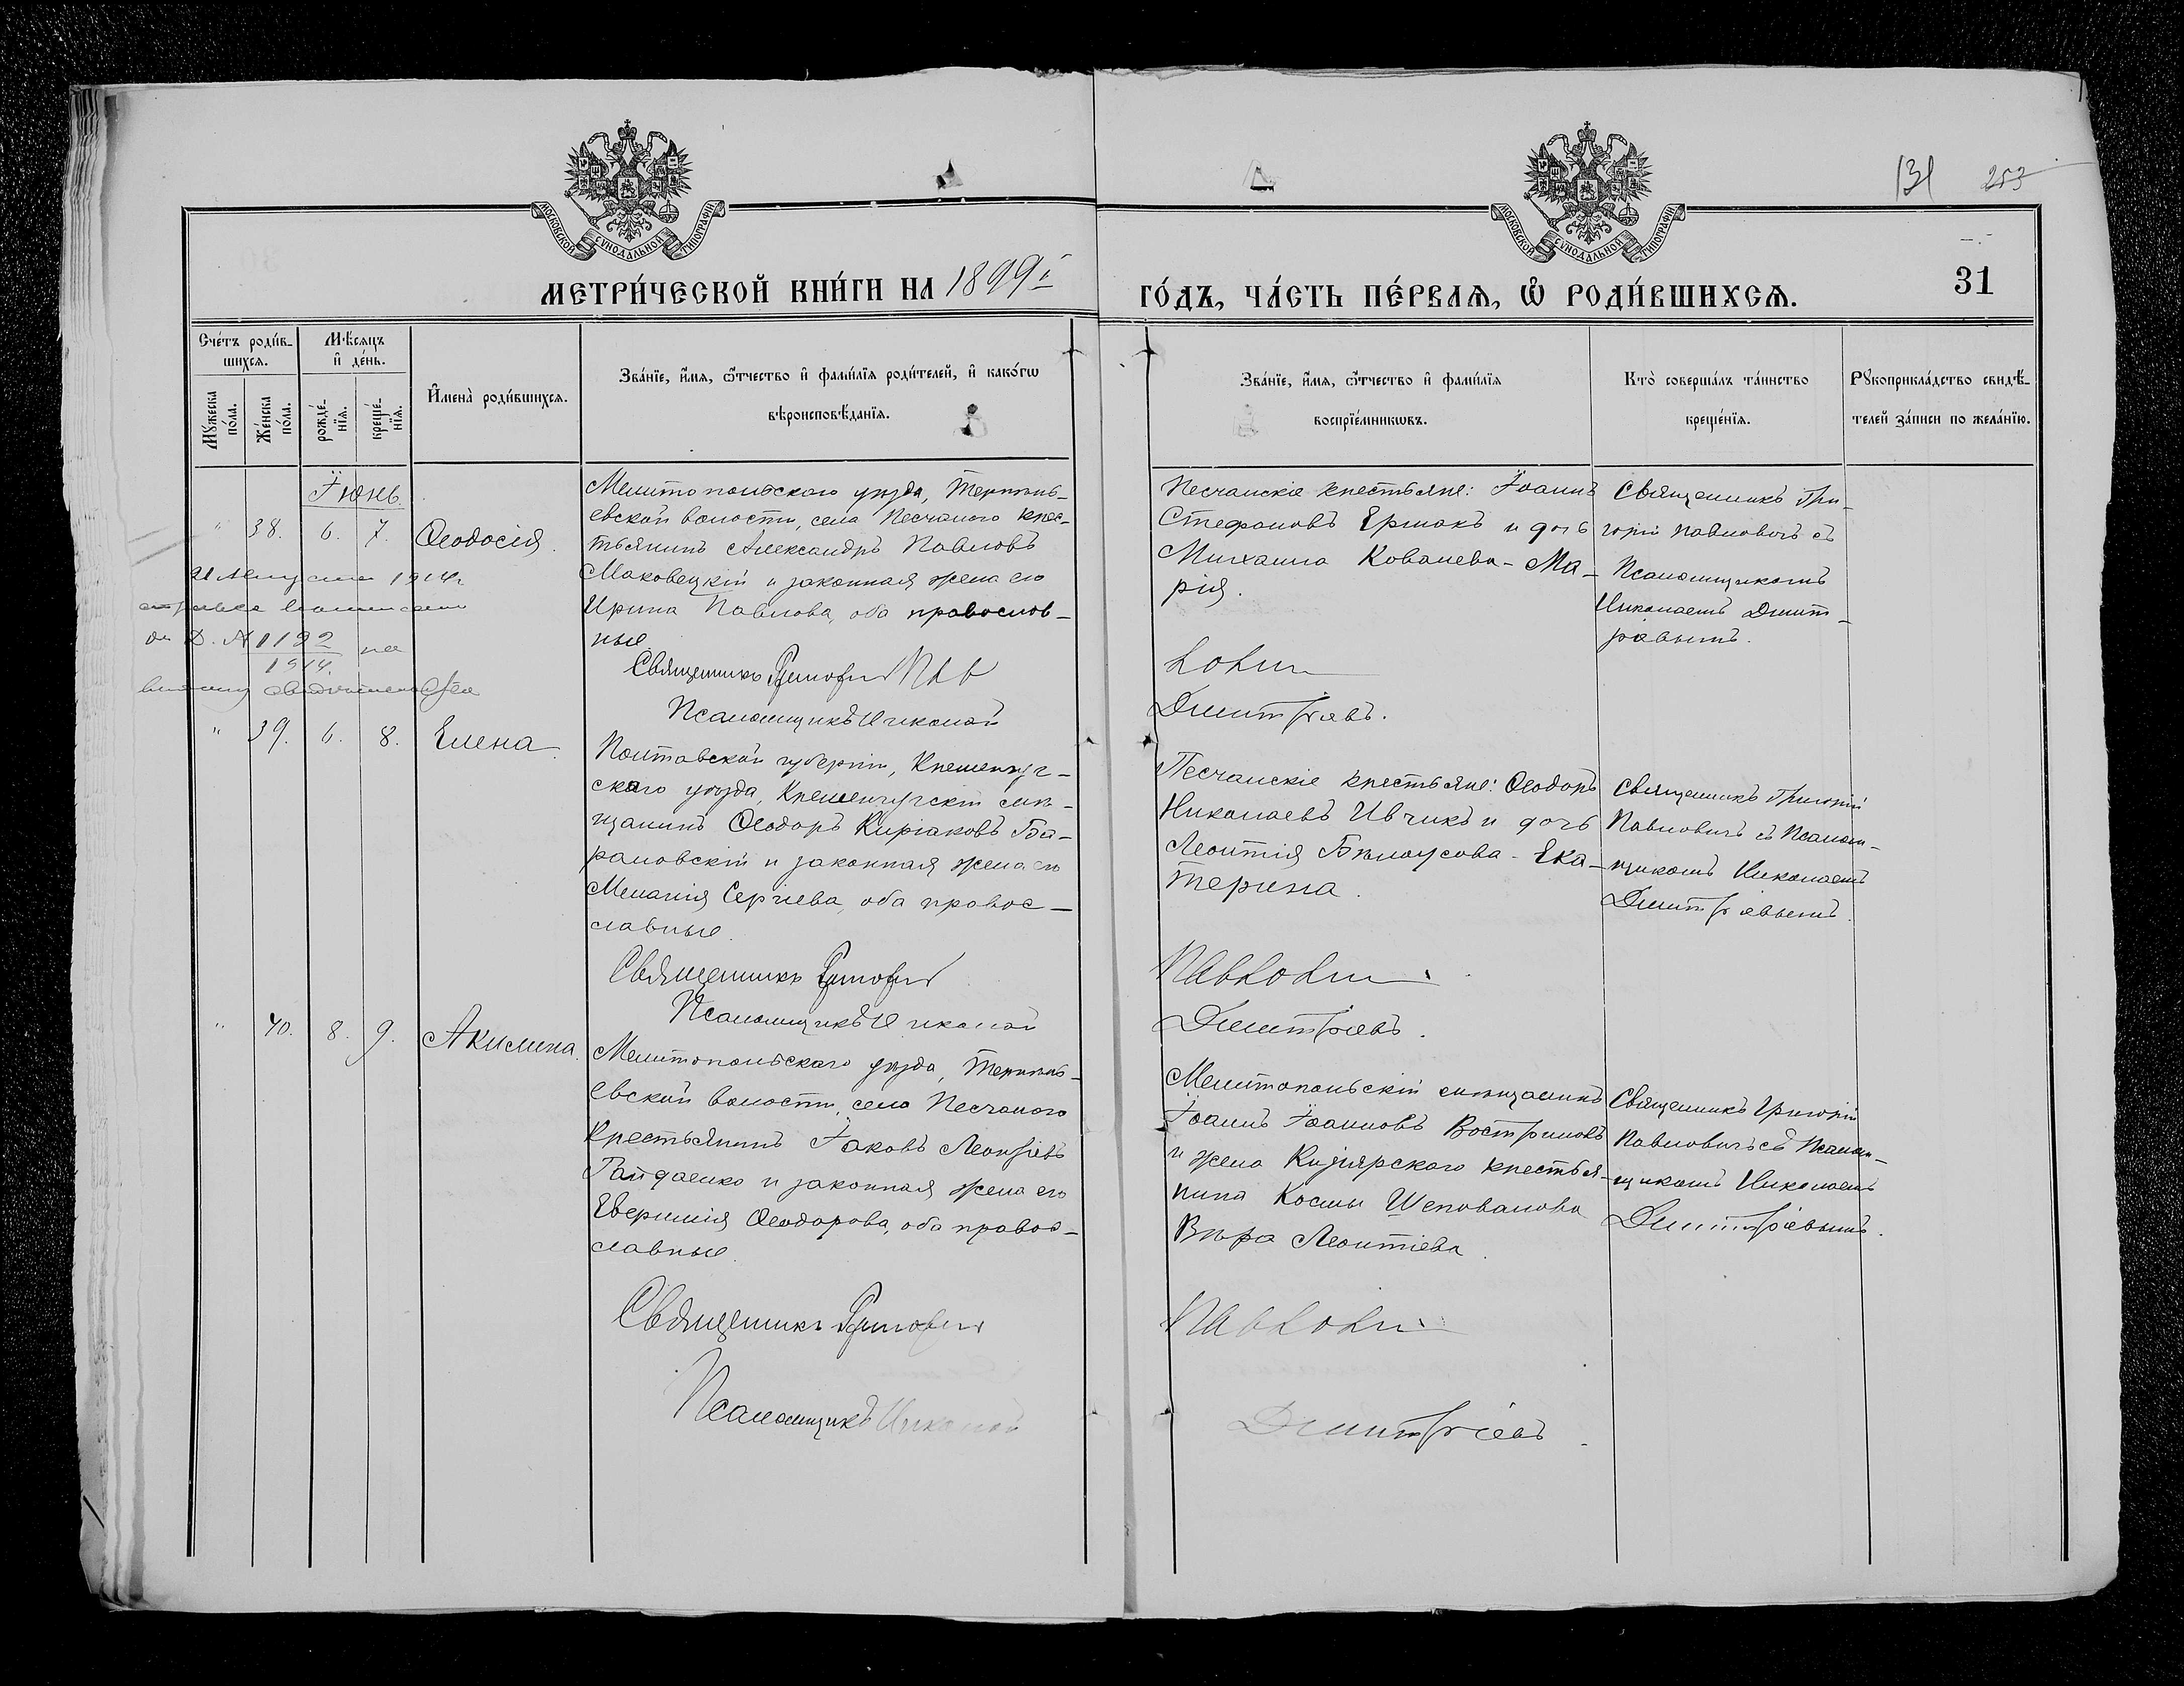 131 253
МОСКОВСКОЙ СѴНОДАЛЬНОЙ ТИПОГРАФІИ
МОСКОВСКОЙ СѴНОДАЛЬНОЙ ТИПОГРАФІИ
МЕТРИ́ЧЕСКОЙ КНИ́ГИ НА 1899й
ГО́ДЪ, ЧА́СТЬ ПЕ́РВАѦ, Ѡ҆ РОДИ́ВШИХСѦ.
31
Сче́тъ роди́в-
шихсѧ.
Мꙋ́жеска
по́ла.
Же́нска
по́ла.
Мѣ́сѧцъ
и҆ де́нь.
рожде́-
нїѧ.
креще́-
нїѧ.
И҆мена̀ роди́вшихсѧ.
Зва́нїе, и҆́мѧ, ѻ҆́тчество и҆ фамі́лїѧ роди́телей, и҆ како́гѡ
вѣроисповѣ́данїѧ.
Зва́нїе, и҆́мѧ, ѻ҆́тчество и҆ фамі́лїѧ
воспрїе́мникѡвъ.
Кто̀ соверша́лъ та́инство
креще́нїѧ.
Рꙋкоприкла́дство свидѣ́-
телей за́писи по жела́нїю.
Іюнь.
" 38. 6. 7. Ѳеодосія.
Мелитопольскаго уѣзда, Терпѣнь-
евской волости, села Песчаного крес-
тьянинъ Александръ Павловъ
Маковецкій и законная жена его
Ирина Павлова, оба православ-
ные.
Священникъ Григорій Пав
Псаломщикъ Николай
Песчанскіе крестьяне: Іоаннъ
Стефановъ Ермакъ и дочь
Михаила Ковалева - Ма-
рія.
ловичъ
Димитріевъ.
Священникъ Гри-
горій Павловичъ съ
Псаломщикомъ
Николаемъ Димит-
ріевымъ.
1914г
№ 1192
1914 на
" 39. 6. 8. Елена.
Полтавской губерніи, Кременчуг-
скаго уѣзда, Кременчугскій мѣ-
щанинъ Ѳеодоръ Киріаковъ Ба-
рановскій и законная жена его
Меланія Сергіева, оба правос-
лавные.
Священникъ Григорій
Псаломщикъ Николай
Песчанскіе крестьяне: Ѳеодоръ
Николаевъ Ивчикъ и дочь
Леонтія Бѣлоусова - Ека-
терина.
Павловичъ
Димитріевъ.
Священникъ Григорій
Павловичъ съ Псалом-
щикомъ Николаемъ
Димитріевымъ.
" 40. 8. 9. Акилина.
Мелитопольскаго уѣзда, Терпѣнь-
евской волости, села Песчаного
Крестьянинъ Іаковъ Леонтіевъ
Гайдаенко и законная жена его
Евфимія Ѳеодорова, оба правос-
лавные.
Священникъ Григорій
Псаломщикъ Николай
Мелитопольскій мѣщанинъ
Іоаннъ Іоанновъ Востриковъ
и жена Кизіярскаго крестья-
нина Космы Шеповалова
Вѣра Леонтіева.
Павловичъ
Димитріевъ.
Священникъ Григорій
Павловичъ съ Псалом-
щикомъ Николаемъ
Димитріевымъ.